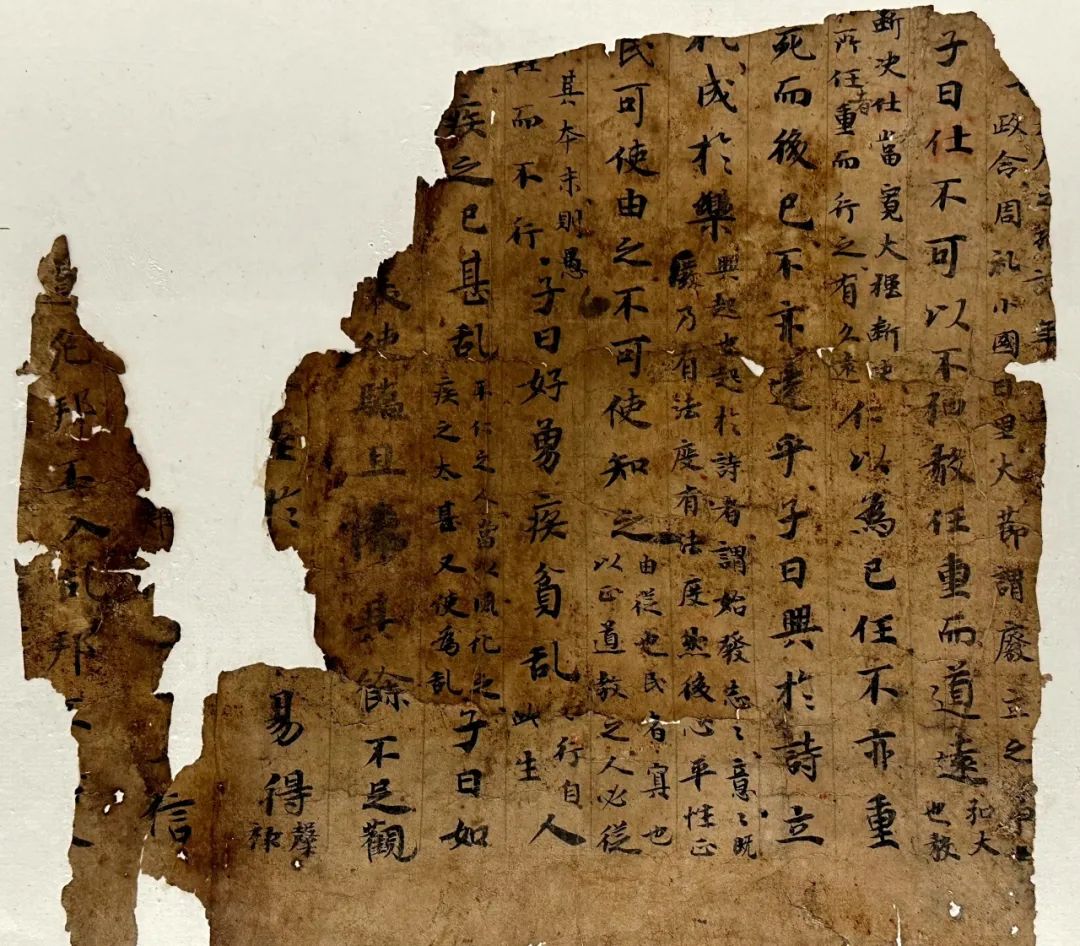 政令周礼小國曰里大節謂廢立之
子曰仕不可以不弘毅任重而道遠弘大
也毅
断决仕當寬大强断决
所任者重而行之有久遠仁以為己任不亦重
死而後已不亦遠乎子曰興於詩立
礼成於樂興起也起於詩者謂始發志〻意〻既
乃有法度有法度然後心平性正
民可使由之不可使知之由從也民者冥也
以正道教之人必從
其本末則愚
而不行子曰好勇疾貧乱〻行自
此生人
疾之已甚乱平仁之人當以風化之
疾之太甚又使為乱子曰如
使驕且悋其餘不足觀
至於
易得聲
信
危邦不入乱邦